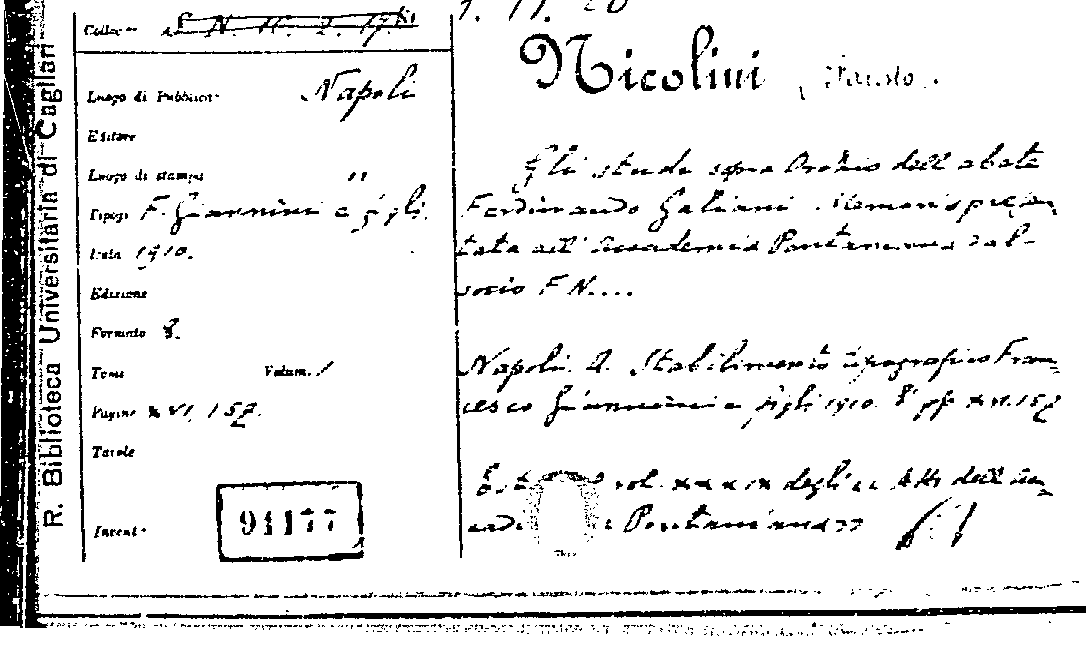 R. Biblioteca Universitaria di Cagliari
Colloc
N. 11. 2.
Luogo di Pubblic
Napoli
Editore
Luogo di stampa
"
Tipogr F. Giannini e figli.
Data 1910.
Edizione
Formato 8.
Tomi Volum. 1
Pagine XVI, 157.
Tavole
Invent
94177
Nicolini, Fausto.
Gli studi sopra Orazio dell'abate
Ferdinando Galiani. Memoria presen-
tata all'Accademia Pontaniana dal
socio F. N....
Napoli. Stabilimento tipografico Fran-
cesco Giannini e figli 1910. 8° pp. XVI. 157
vol. XXXIX degli «Atti dell'Ac-
Pontaniana»